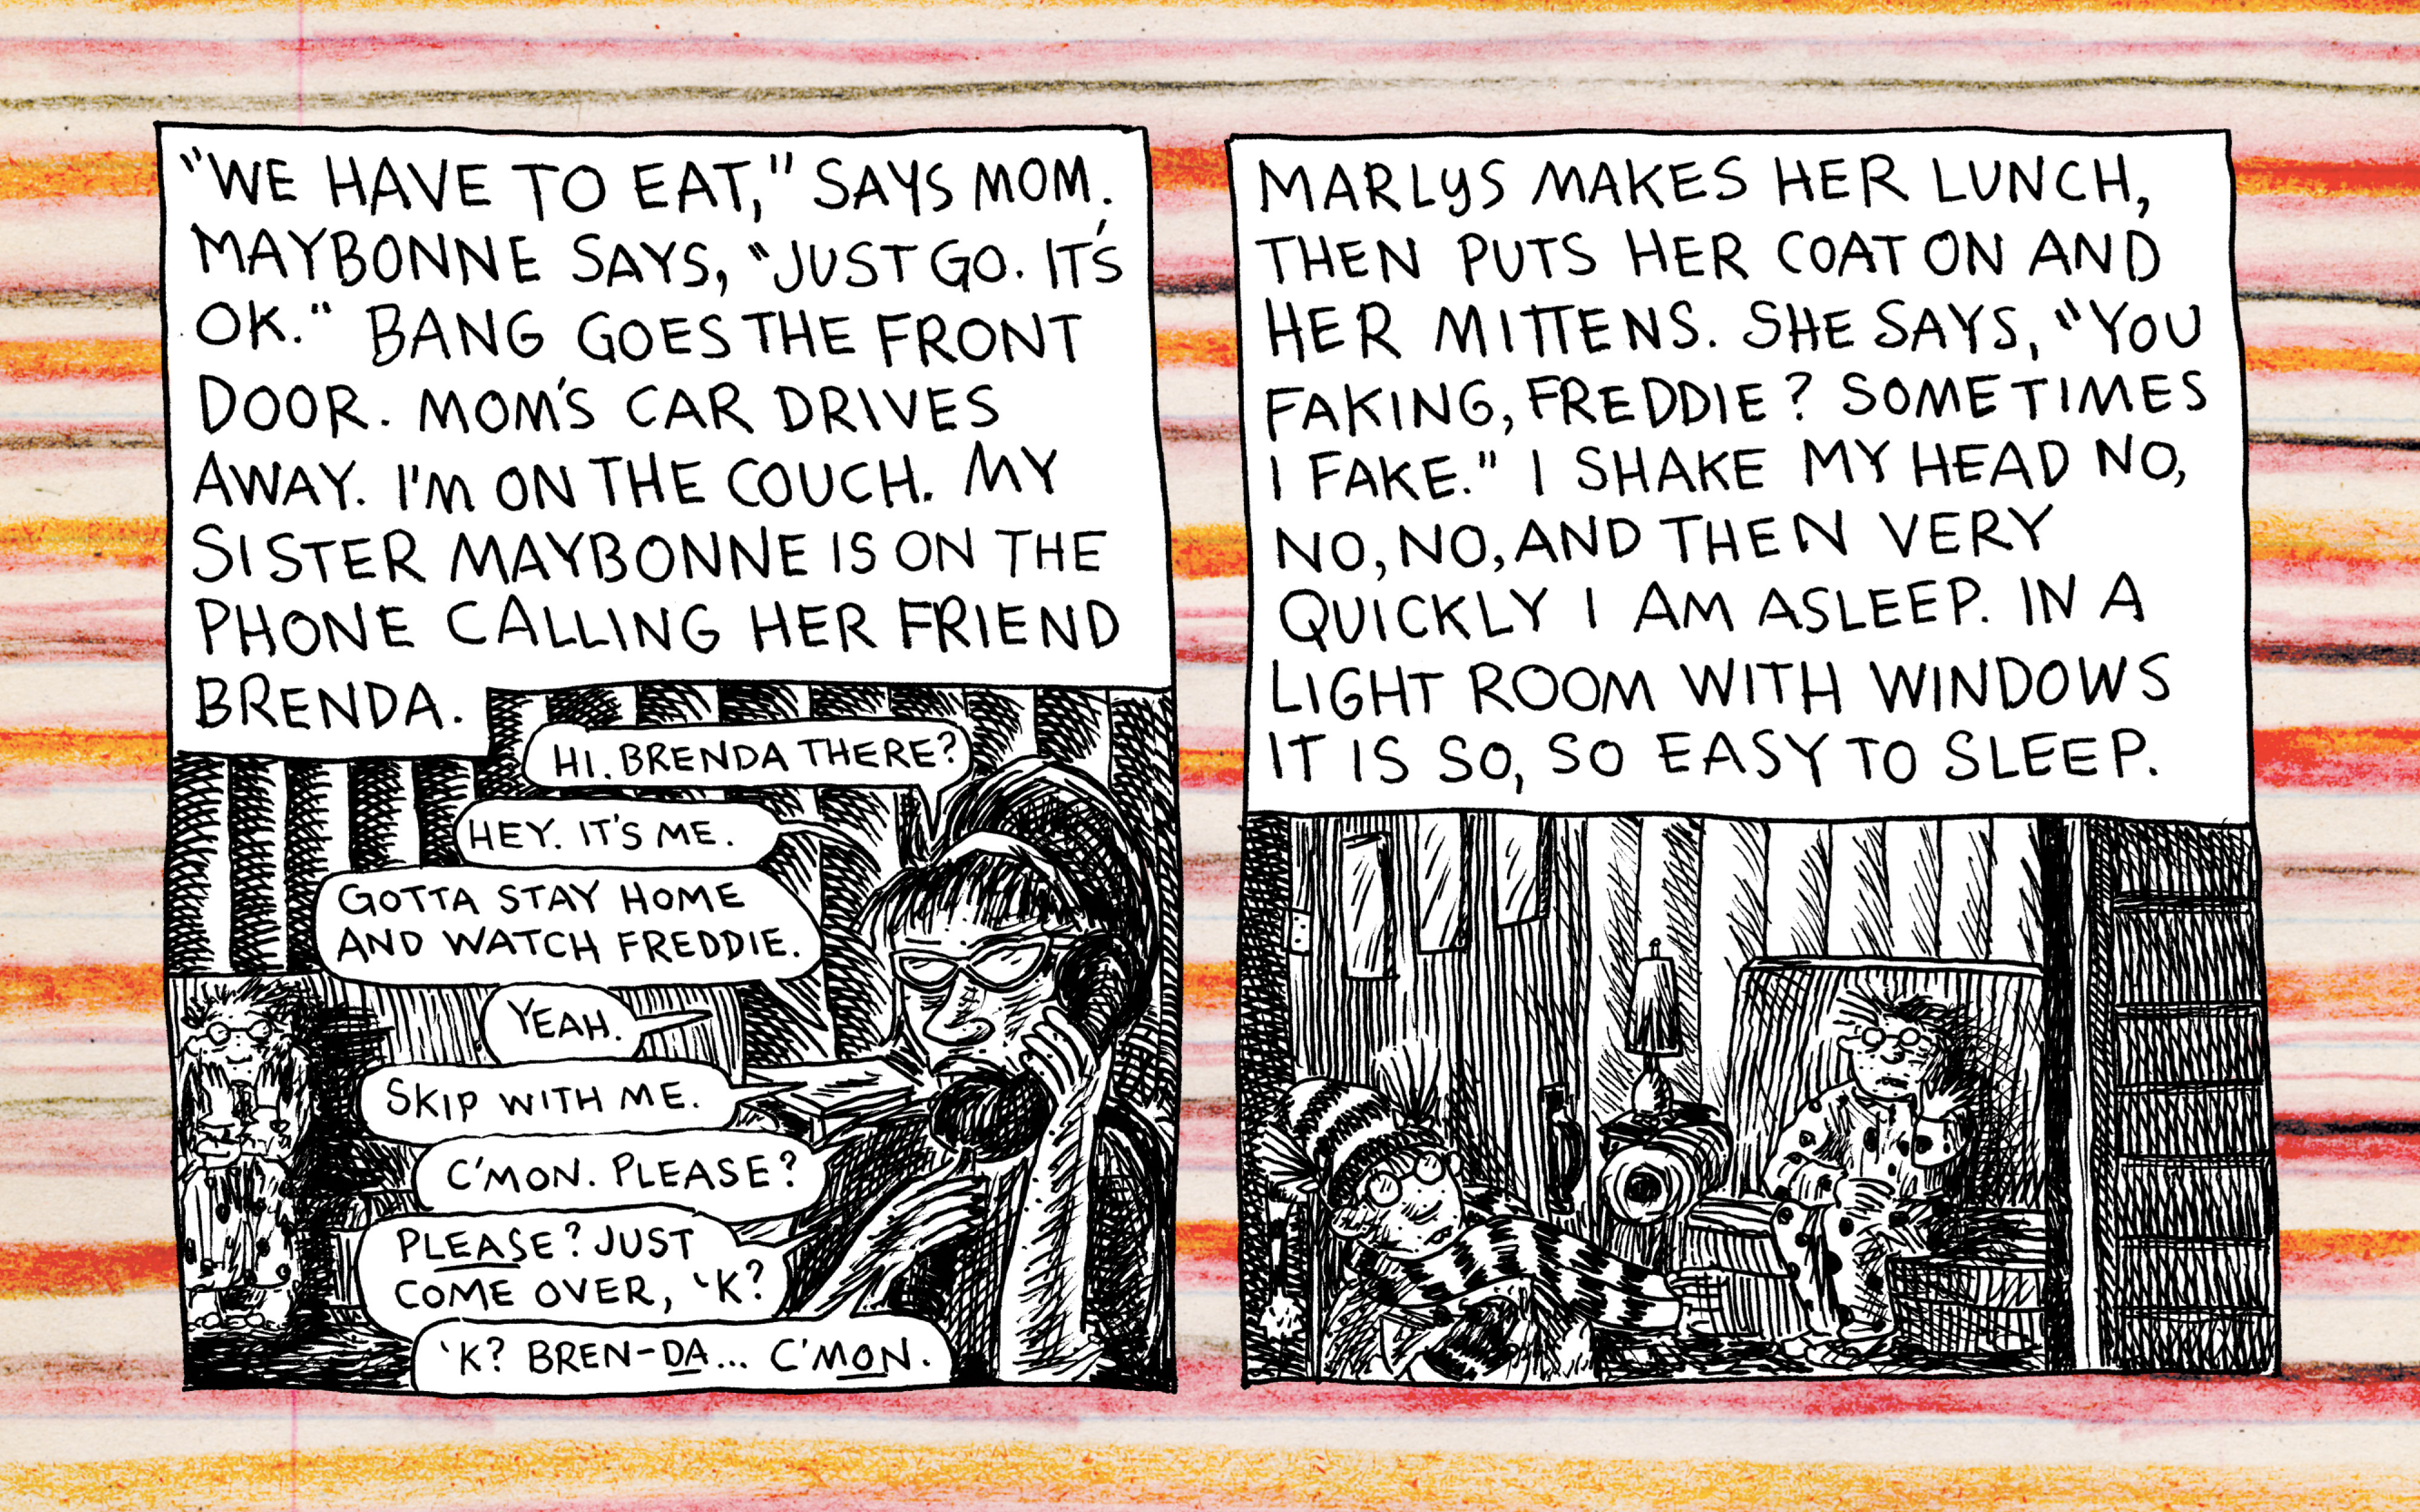 "WE HAVE TO EAT," SAYS MOM.
MAYBONNE SAYS, "JUST GO. IT'S
OK." BANG GOES THE FRONT
DOOR. MOM'S CAR DRIVES
AWAY. I'M ON THE COUCH. MY
SISTER MAYBONNE IS ON THE
PHONE CALLING HER FRIEND
BRENDA.
HI. BRENDA THERE?
HEY. IT'S ME.
GOTTA STAY HOME
AND WATCH FREDDIE.
YEAH.
SKIP WITH ME.
C'MON. PLEASE?
PLEASE? JUST
COME OVER, 'K?
'K? BREN-DA... C'MON.
MARLYS MAKES HER LUNCH,
THEN PUTS HER COAT ON AND
HER MITTENS. SHE SAYS, "YOU
FAKING, FREDDIE? SOMETIMES
I FAKE." I SHAKE MY HEAD NO,
NO, NO, AND THEN VERY
QUICKLY I AM ASLEEP. IN A
LIGHT ROOM WITH WINDOWS
IT IS SO, SO EASY TO SLEEP.